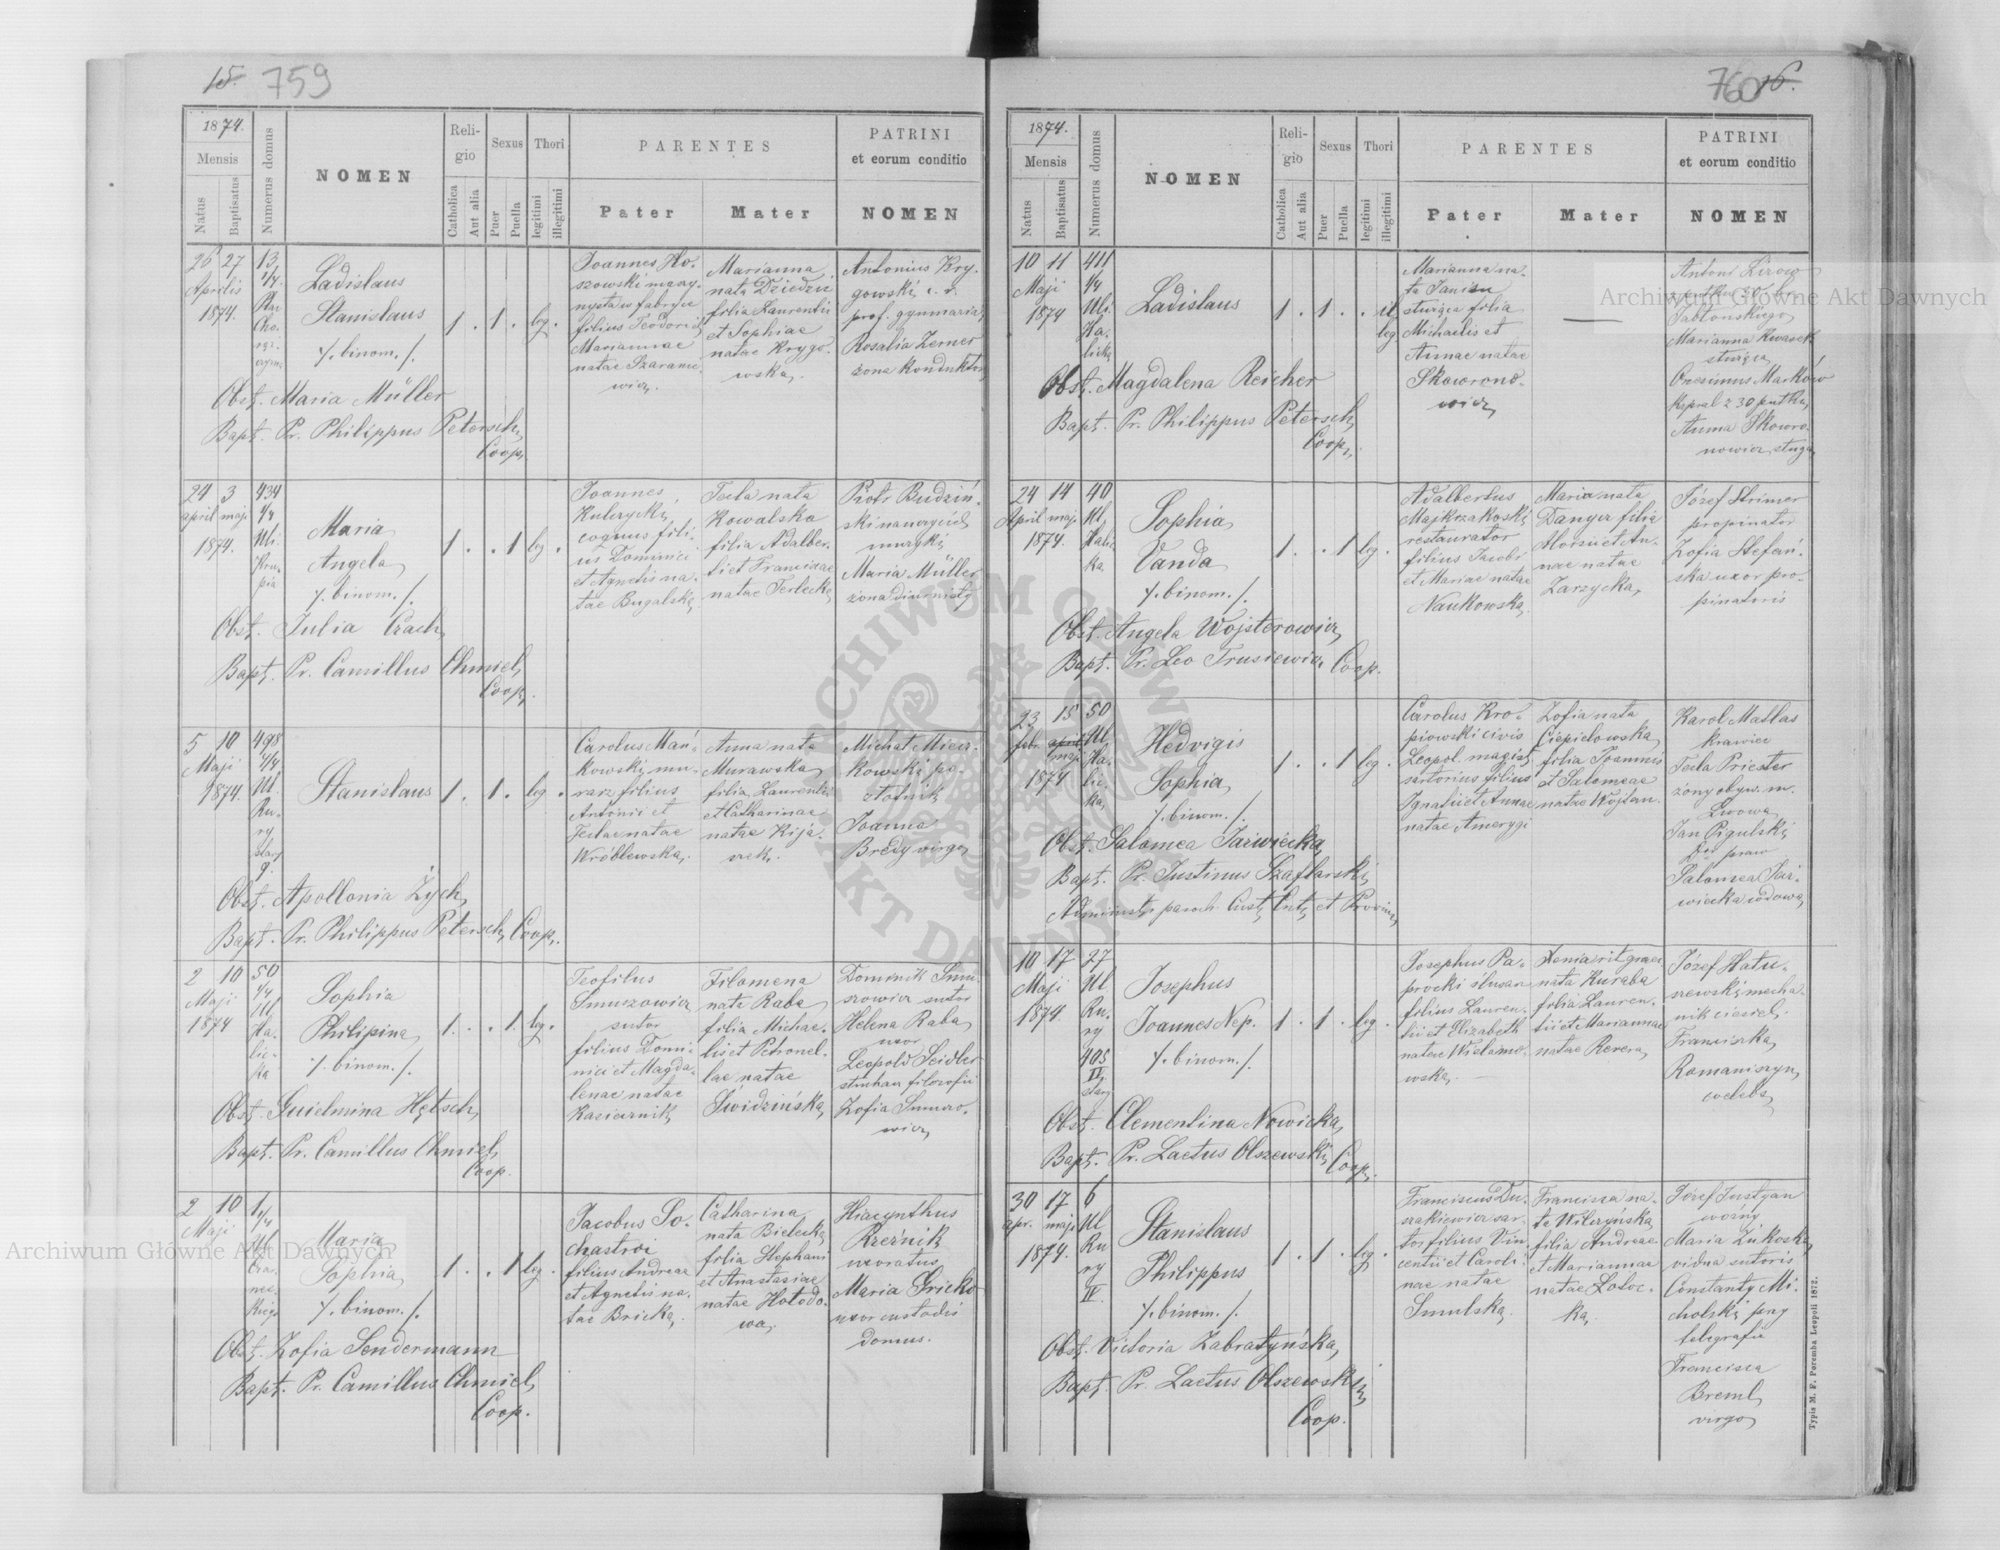 15. 759
1874.
Mensis
Natus
Baptisatus
Numerus domus
NOMEN
Religio
Catholica
Aut alia
Sexus
Puer
Puella
Thori
legitimi
illegitimi
PARENTES
Pater
Mater
PATRINI
et eorum conditio
NOMEN
26 27 13
Aprilis 1/4
1874.
Ladislaus
Stanislaus
/. binom. /.
1 . 1 . leg .
Joannes Ho-
szowski maszy-
nysta w fabryce
filius Teodori et
Mariannae
natae Szarane-
wicz.
Marianna
nata Dziedzic
filia Laurentii
et Sophiae
natae Krygo-
wska.
Antonius Kry-
gowski c. k.
prof. gymnazia.
Rosalia Zerner
żona konduktora
Obst. Maria Müller
Bapt. Pr. Philippus Petersch,
Coop.
24 3 434
april maji 1/4
1874. Uli
Kru-
pia
Maria
Angela
/. binom. /.
1 . . 1 leg .
Joannes
coquus fili-
us Dominici
et Agnetis na-
tae Bugalska,
Tecla nata
Kowalska
filia Adalber-
ti et Franciscae
natae Terlecka,
Piotr Budziń-
ski nauczyciel
muzyki
Maria Müller
żona diurnisty
Obst. Julia Czach,
Bapt. Pr. Camillus Chmiel,
Coop.
5 10 498
Maji 1/4
1874. Ul.
Ru-
ry
Stanislaus
1 . 1 . leg .
Carolus Mań-
kowski mu-
rarz filius
Antonii et
Teclae natae
Wróblewska,
Anna nata
Murawska
filia Laurentii
et Catharinae
natae Kija-
Michał Miecz-
kowski
Joanna
Bredy virgo
Obst. Apollonia Zych,
Bapt. Pr. Philippus Petersch, Coop.
2 10 50
Maji 1/4
1874 Ul
Ha-
lic-
ka
Sophia
Philipina,
/. binom. /.
1 . . 1 leg .
Teofilus
Smuszowicz
sutor
filius Domi-
nici et Magda-
lenae natae
Kaciarnik,
Filomena
nata Raba
filia Michae-
lis et Petronel-
lae natae
Świdzińska,
Dominik Smu-
szowicz sutor
Helena Raba
uxor
Leopold Seidler
słuchacz filozofii
Zofia Smuszo-
wicz
Obst. Guielmina Hętsch,
Bapt. Pr. Camillus Chmiel,
Coop.
2 10 1
Maji 1/4
Ul
Czar-
nec-
Maria
Sophia,
/. binom. /.
1 . . 1 leg .
Jacobus So-
chastroi
filius Andreae
et Agnetis na-
tae Bricka,
Catharina
nata Bielecka
filia Stephani
et Anastasiae
natae Hołodo-
wa,
Hiacynthus
Rzeźnik
uxoratus
Maria Gricko
uxor custodis
domus.
Obst. Zofia Sendermann
Bapt. Pr. Camillus Chmiel,
Coop.
760 16.
1874.
Mensis
Natus
Baptisatus
Numerus domus
NOMEN
Religio
Catholica
Aut alia
Sexus
Puer
Puella
Thori
legitimi
illegitimi
PARENTES
Pater
Mater
PATRINI
et eorum conditio
NOMEN
10 11 411
Maji 1/4
1874 Uli.
Ha-
licka
Ladislaus
1 . 1 . . il
leg
Marianna na-
ta
służąca filia
Michaelis et
Annae natae
Skowrono-
wicz,
Antoni
Jabłońskiego
Marianna Kwasek
służąca
Onesimus Marków
kapral z 30 pułku,
Anna Skowro-
nowicz sługa
Obst. Magdalena Reicher
Bapt. Pr. Philippus Petersch,
Coop.
24 14 40
April maji Ul.
1874. Halic-
ka
Sophia
Vanda
/. binom. /.
1 . . 1 leg .
Adalbertus
Majkrzakoski
restaurator
filius Jacobi
et Mariae natae
Naukowska,
Maria nata
Danyer filia
Aloisii et An-
nae natae
Zarzycka,
Józef Strimer
propinator
Zofia Stefań-
ska uxor pro-
pinatoris
Obst. Angela Wojsterowicz,
Bapt. Pr. Leo Trusiewicz, Coop.
23 15 50
febr. april Ul.
maji Ha-
1874 lic-
ka,
Hedvigis
Sophia,
/. binom. /.
1 . . 1 leg .
Carolus Kro-
piowski civis
Leopol. magist.
sartorius filius
Ignatii et Annae
natae Amerygi
Zofia nata
Ciepielowska,
filia Joannis
et Salomeae
natae Wojtan.
Karol Matlas
krawiec
Tecla Priester
żony obyw. m.
Lwowa,
Jan Pigulski
Dr. praw
Salomea Jaź-
wiecka wdowa,
Obst. Salomea Jaźwiecka,
Bapt. Pr. Justinus Szaflarski,
Administr. paroch. Cust. et Provinc.
10 17 27
Maji Ul
1874. Ru-
ry
405
II
Josephus
Joannes Nep.
/. binom. /.
1 . 1 . leg .
Josephus Pa-
procki ślusarz
filius Lauren-
tii et Elizabeth
natae Wielamo-
wska,
Xenia rit. graec.
nata Kuraba
filia Lauren-
tii et Mariannae
natae Rerera,
Józef Hatu-
szewski mecha-
nik ciesiel.
Franciszka,
Romaniszyn,
coelebs,
Obst. Clementina Nowicka,
Bapt. Pr. Laetus Olszewski, Coop.
30 17 6
apr. maji Ul
1874. Ru-
ry
IV
Stanislaus
Philippus
/. binom. /.
1 . 1 . leg .
Franciscus Du-
szakiewicz sar-
tor filius Vin-
centii et Caroli-
nae natae
Smulska,
Francisca na-
ta Wilczyńska
filia Andreae
et Mariannae
natae Zołoc-
ka,
Józef Justyan
woźny
Maria Żukoska,
vidua sutoris
Constanty Mi-
cholski, przy
telegrafie
Francisca
Breml,
virgo,
Obst. Victoria Zabratyńska,
Bapt. Pr. Laetus Olszewski,
Coop.
Typis M. F. Poremba Leopoli 1872.
Archiwum Główne Akt Dawnych
Archiwum Główne Akt Dawnych
ARCHIWUM GŁÓWNE AKT DAWNYCH